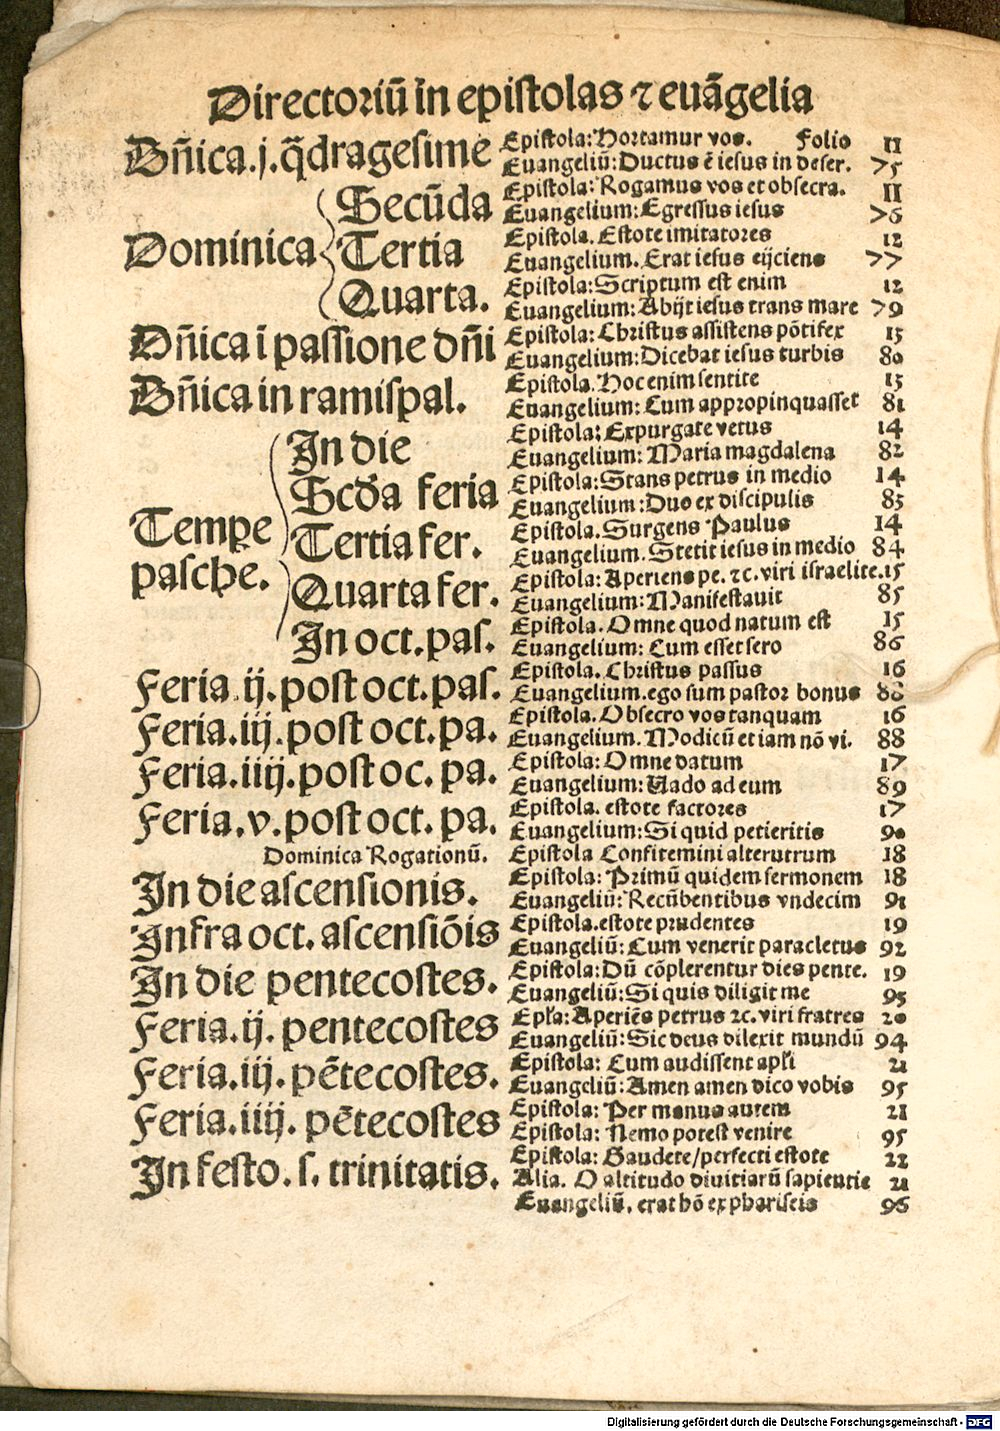 Directoriū in epistolas ⁊ euāgelia
Dn̄ica.j. q̄dragesime Epistola: Hortamur vos. Folio 11
Euangeliū: Ductus ē iesus in deser. 75
Secūda Epistola: Rogamus vos et obsecra. 11
Euangelium: Egressus iesus 76
Dominica Tertia Epistola. Estote imitatores 12
Euangelium. Erat iesus eijciens 77
Quarta. Epistola: Scriptum est enim 12
Euangelium: Abijt iesus trans mare 79
Dn̄ica ī passione dn̄i Epistola: Christus assistens pōtifex 13
Euangelium: Dicebat iesus turbis 80
Dn̄ica in ramispal. Epistola. Hoc enim sentite 13
Euangelium: Cum appropinquasset 81
In die Epistola: Expurgate vetus 14
Euangelium: Maria magdalena 82
Scd̄a feria Epistola: Stans petrus in medio 14
Euangelium: Duo ex discipulis 83
Tempe pasche. Tertia fer. Epistola. Surgens Paulus 14
Euangelium. Stetit iesus in medio 84
Quarta fer. Epistola: Aperiens pe. ⁊c. viri israelite. 15
Euangelium: Manifestauit 85
In oct. pas. Epistola. Omne quod natum est 15
Euangelium: Cum esset sero 86
Feria.ij. post oct. pas. Epistola. Christus passus 16
Euangelium. ego sum pastor bonus 88
Feria.iij. post oct. pa. Epistola. Obsecro vos tanquam 16
Euangelium. Modicū et iam nō vi. 88
Feria.iiij. post oc. pa. Epistola: Omne datum 17
Euangelium: Uado ad eum 89
Feria.v. post oct. pa. Epistola. estote factores 17
Euangelium: Si quid petieritis 90
Dominica Rogationū. Epistola Confitemini alterutrum 18
In die ascensionis. Epistola: Primū quidem sermonem 18
Euangeliū: Recūbentibus vndecim 91
Infra oct. ascensiōis Epistola. estote prudentes 19
Euangeliū: Cum venerit paracletus 92
In die pentecostes. Epistola: Dū cōplerentur dies pente. 19
Euangeliū: Si quis diligit me 93
Feria.ij. pentecostes Ep̄la: Aperiēs petrus ⁊c. viri fratres 20
Euangeliū: Sic deus dilexit mundū 94
Feria.iij. pētecostes. Epistola: Cum audissent apl̄i 21
Euangeliū: Amen amen dico vobis 95
Feria.iiij. pētecostes Epistola: Per manus autem 21
Epistola: Nemo potest venire 95
In festo. s. trinitatis. Epistola: Gaudete/perfecti estote 22
Alia. O altitudo diuitiarū sapientie 21
Euangeliū. erat hō ex phariseis 96
Digitalisierung gefördert durch die Deutsche Forschungsgemeinschaft - DFG